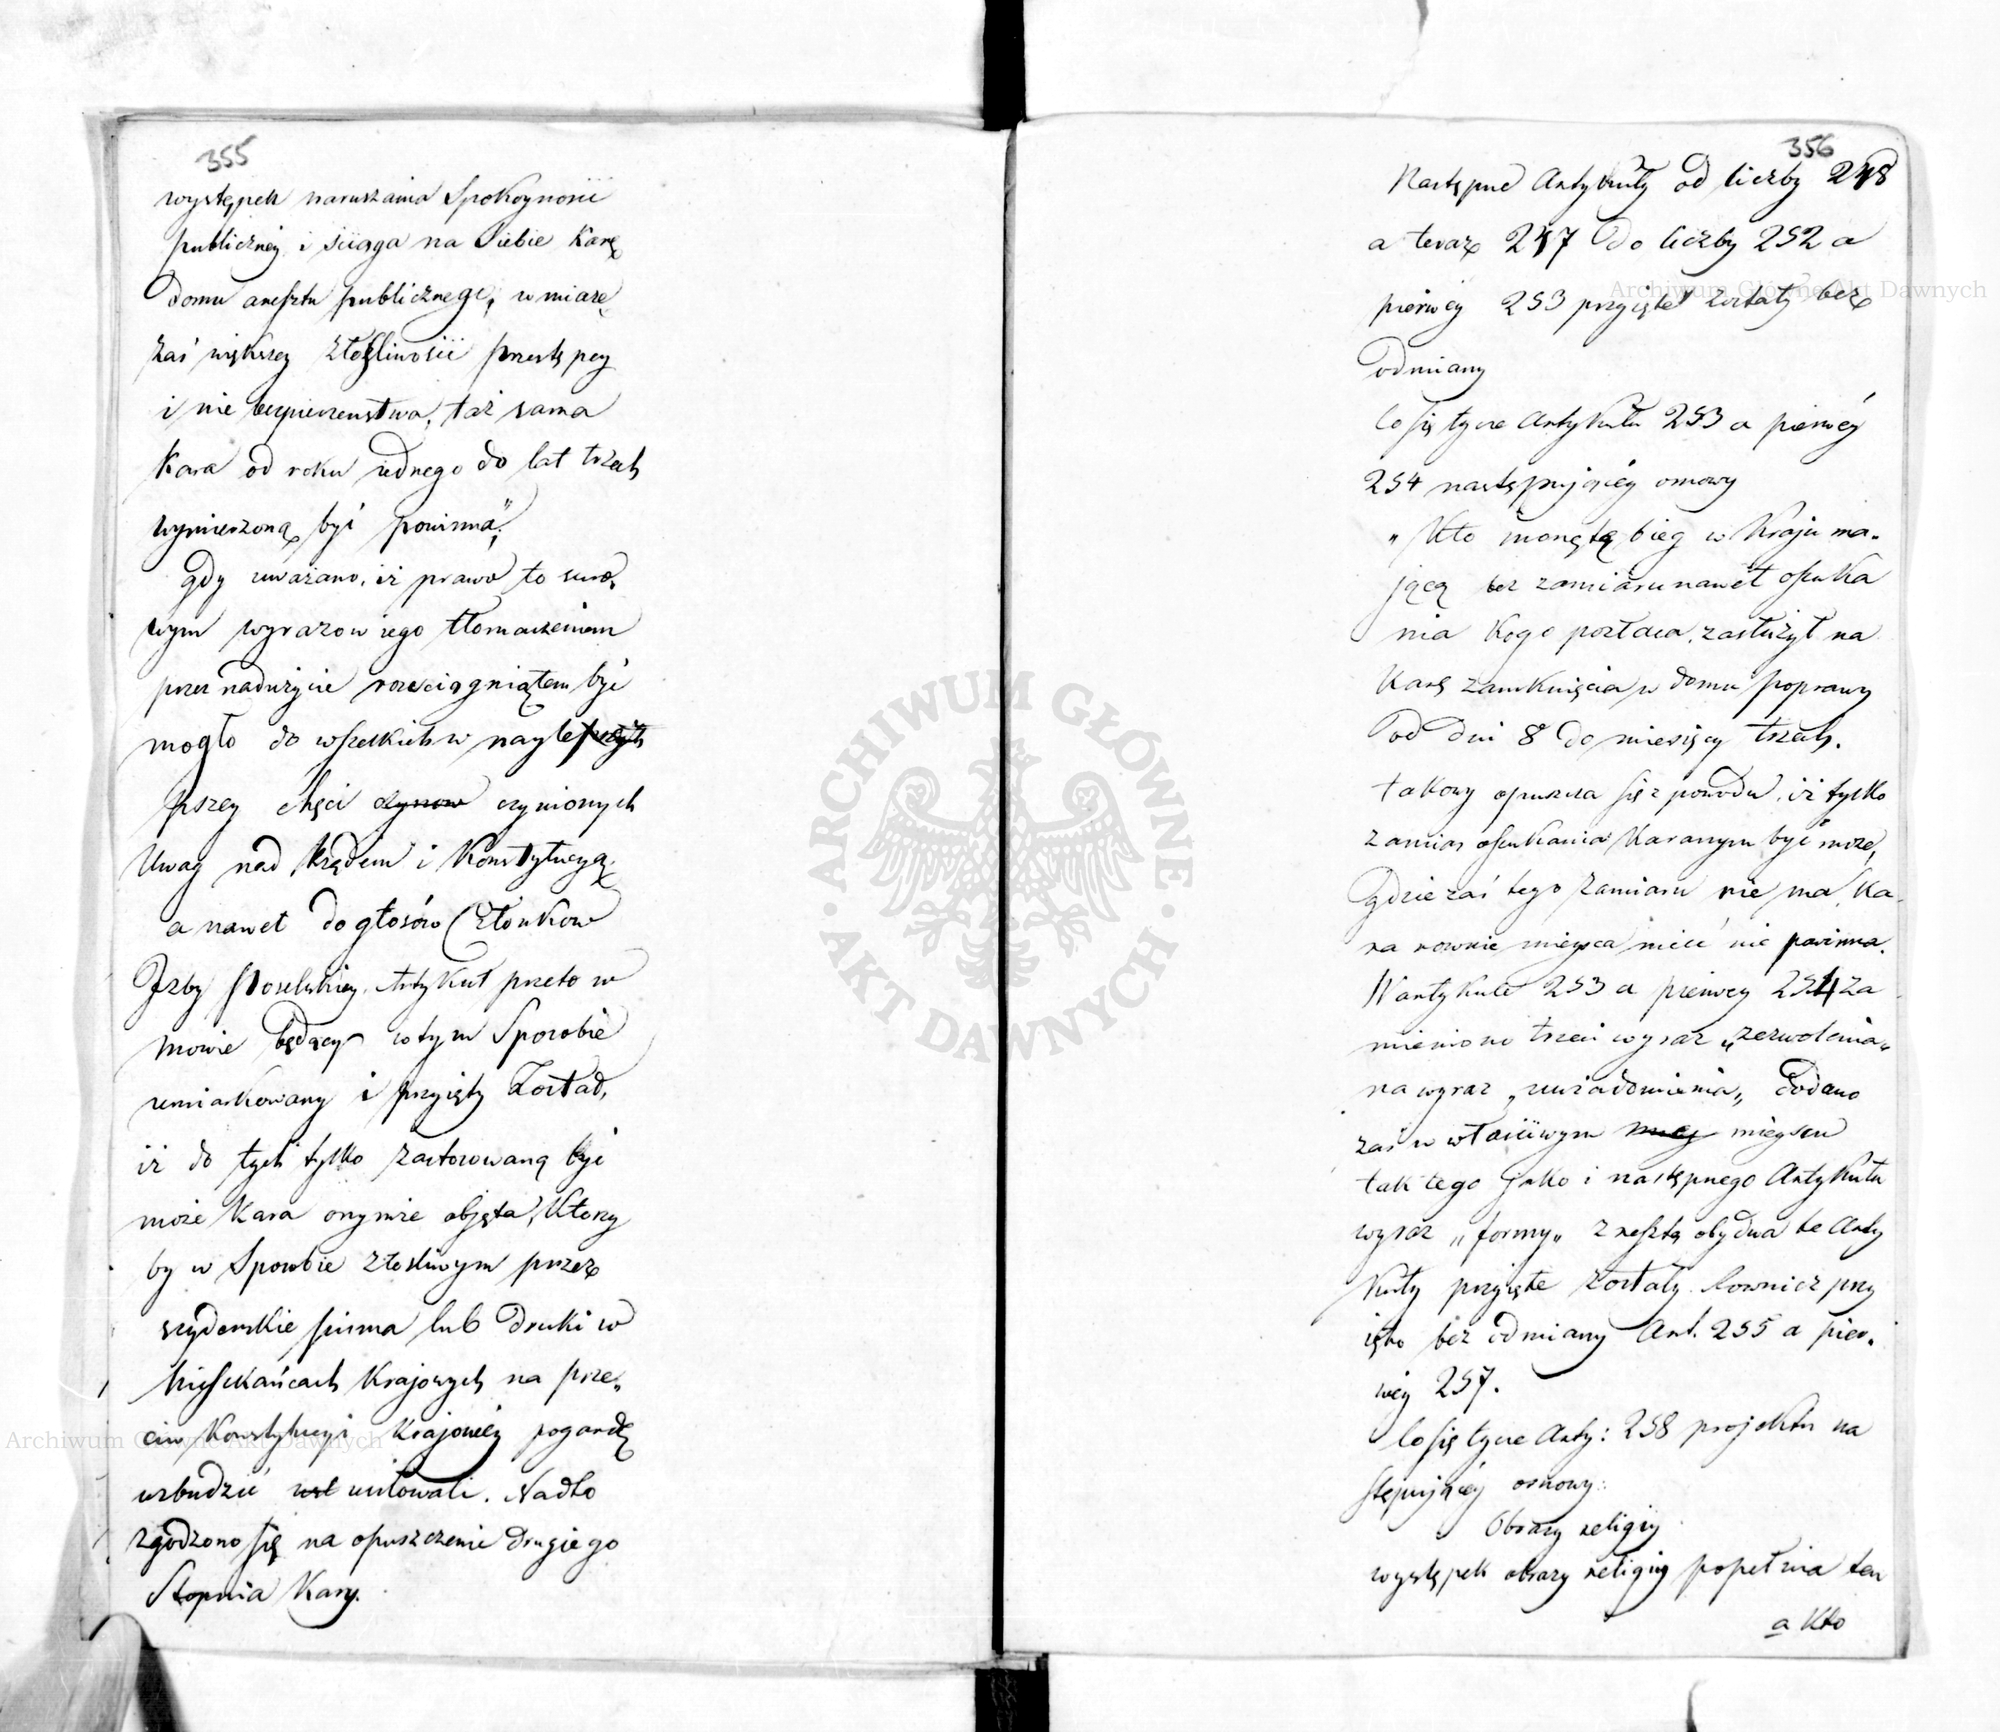 355
występek naruszania Spokoynosci
publiczney i sciąga na siebie karę
domu aresztu publicznego, w miarę
zaś większey złośliwości przestępcy
i nie bezpieczenstwa, taż sama
Kara od roku iednego do lat trzech
wymierzoną być powinna";
gdy uważano, iż prawo to suro„
wym wyrazow iego tłomaczeniem
przez nadużycie rozciągniątem być
mogło do wszelkich w nayle
pszey chęci czynionych
Uwag nad Rządem i Konstytucyą
a nawet do głosów Członkow
Izby Poselskiey. Artykuł przeto w
mowie będący w tym Sposobie
umiarkowany i przyięty został,
iż do tych tylko zastosowaną być
może Kara onymże objęta, Ktorzy
by w Sposobie złośliwym przez
szyderskie pisma lub druki w
Mieszkańcach Krajowych na prze„
ciw Konstytucyi Krajowéy pogardę
wzbudzić usiłowali. Nadto
zgodzono się na opuszczenie drugiego
Stopnia Kary.
356
Następne Artykuły od liczby 248
a teraz 247 do liczby 252 a
pierwéy 253 przyięte zostały bez
odmiany
Co się tycze Artykułu 253 a pierwéy
254 następującéy osnowy
„Kto monętę bieg w Kraju ma„
jącą bez zamiaru nawet oszuka
nia kogo pozłaca, zasłużył na
Karę zamknięcia w domu poprawy
od dni 8 do miesięcy trzech.
takowy opuszcza się z powodu, iż tylko
zamiar oszukania Karanym być może,
gdzie zaś tego zamiaru nie ma, ka
ra rownie mieysca mieć nie powinna.
W artykule 253 a pierwey 254 za
mieniono trzeci wyraz „zezwolenia„
na wyraz „uwiadomienia„ dodano
zaś w właściwym mieyscu
tak tego jako i następnego Artykułu
wyraz „formy„ zresztą obydwa te Arty
kuły przyięte zostały. Rownież przy
ięto bez odmiany Art. 255 a pier„
wey 257.
Co się tycze Arty: 258 projektu na
stępującéy osnowy:
Obrazy religiy
występek obrazy religiy popełnia ten
a Kto
Archiwum Główne Akt Dawnych
Archiwum Główne Akt Dawnych
ARCHIWUM GŁÓWNE · AKT DAWNYCH ·